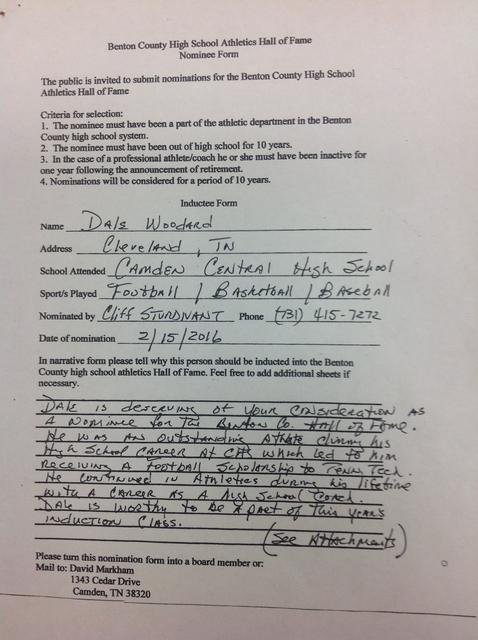 Benton County High School Athletics Hall of Fame
Nominee Form
The public is invited to submit nominations for the Benton County High School
Athletics Hall of Fame
Criteria for selection:
1. The nominee must have been a part of the athletic department in the Benton
County high school system.
2. The nominee must have been out of high school for 10 years.
3. In the case of a professional athlete/coach he or she must have been inactive for
one year following the announcement of retirement.
4. Nominations will be considered for a period of 10 years.
Inductee Form
Name Dale Woodard
Address Cleveland, TN
School Attended Camden Central High School
Sport/s Played Football / Basketball / Baseball
Nominated by Cliff Sturdivant Phone (731) 415-7272
Date of nomination 2/15/2016
In narrative form please tell why this person should be inducted into the Benton
County high school athletics Hall of Fame. Feel free to add additional sheets if
necessary.
Dale is deserving of your consideration as
a nominee for the Benton Co. Hall of Fame.
He was an outstanding athlete during his
High School career at CCHS which led to him
receiving a Football Scholarship to Tenn Tech.
He continued in Athletics during his lifetime
with a career as a High School Coach.
Dale is worthy to be a part of this year's
induction class.
(See Attachments)
Please turn this nomination form into a board member or:
Mail to: David Markham
1343 Cedar Drive
Camden, TN 38320